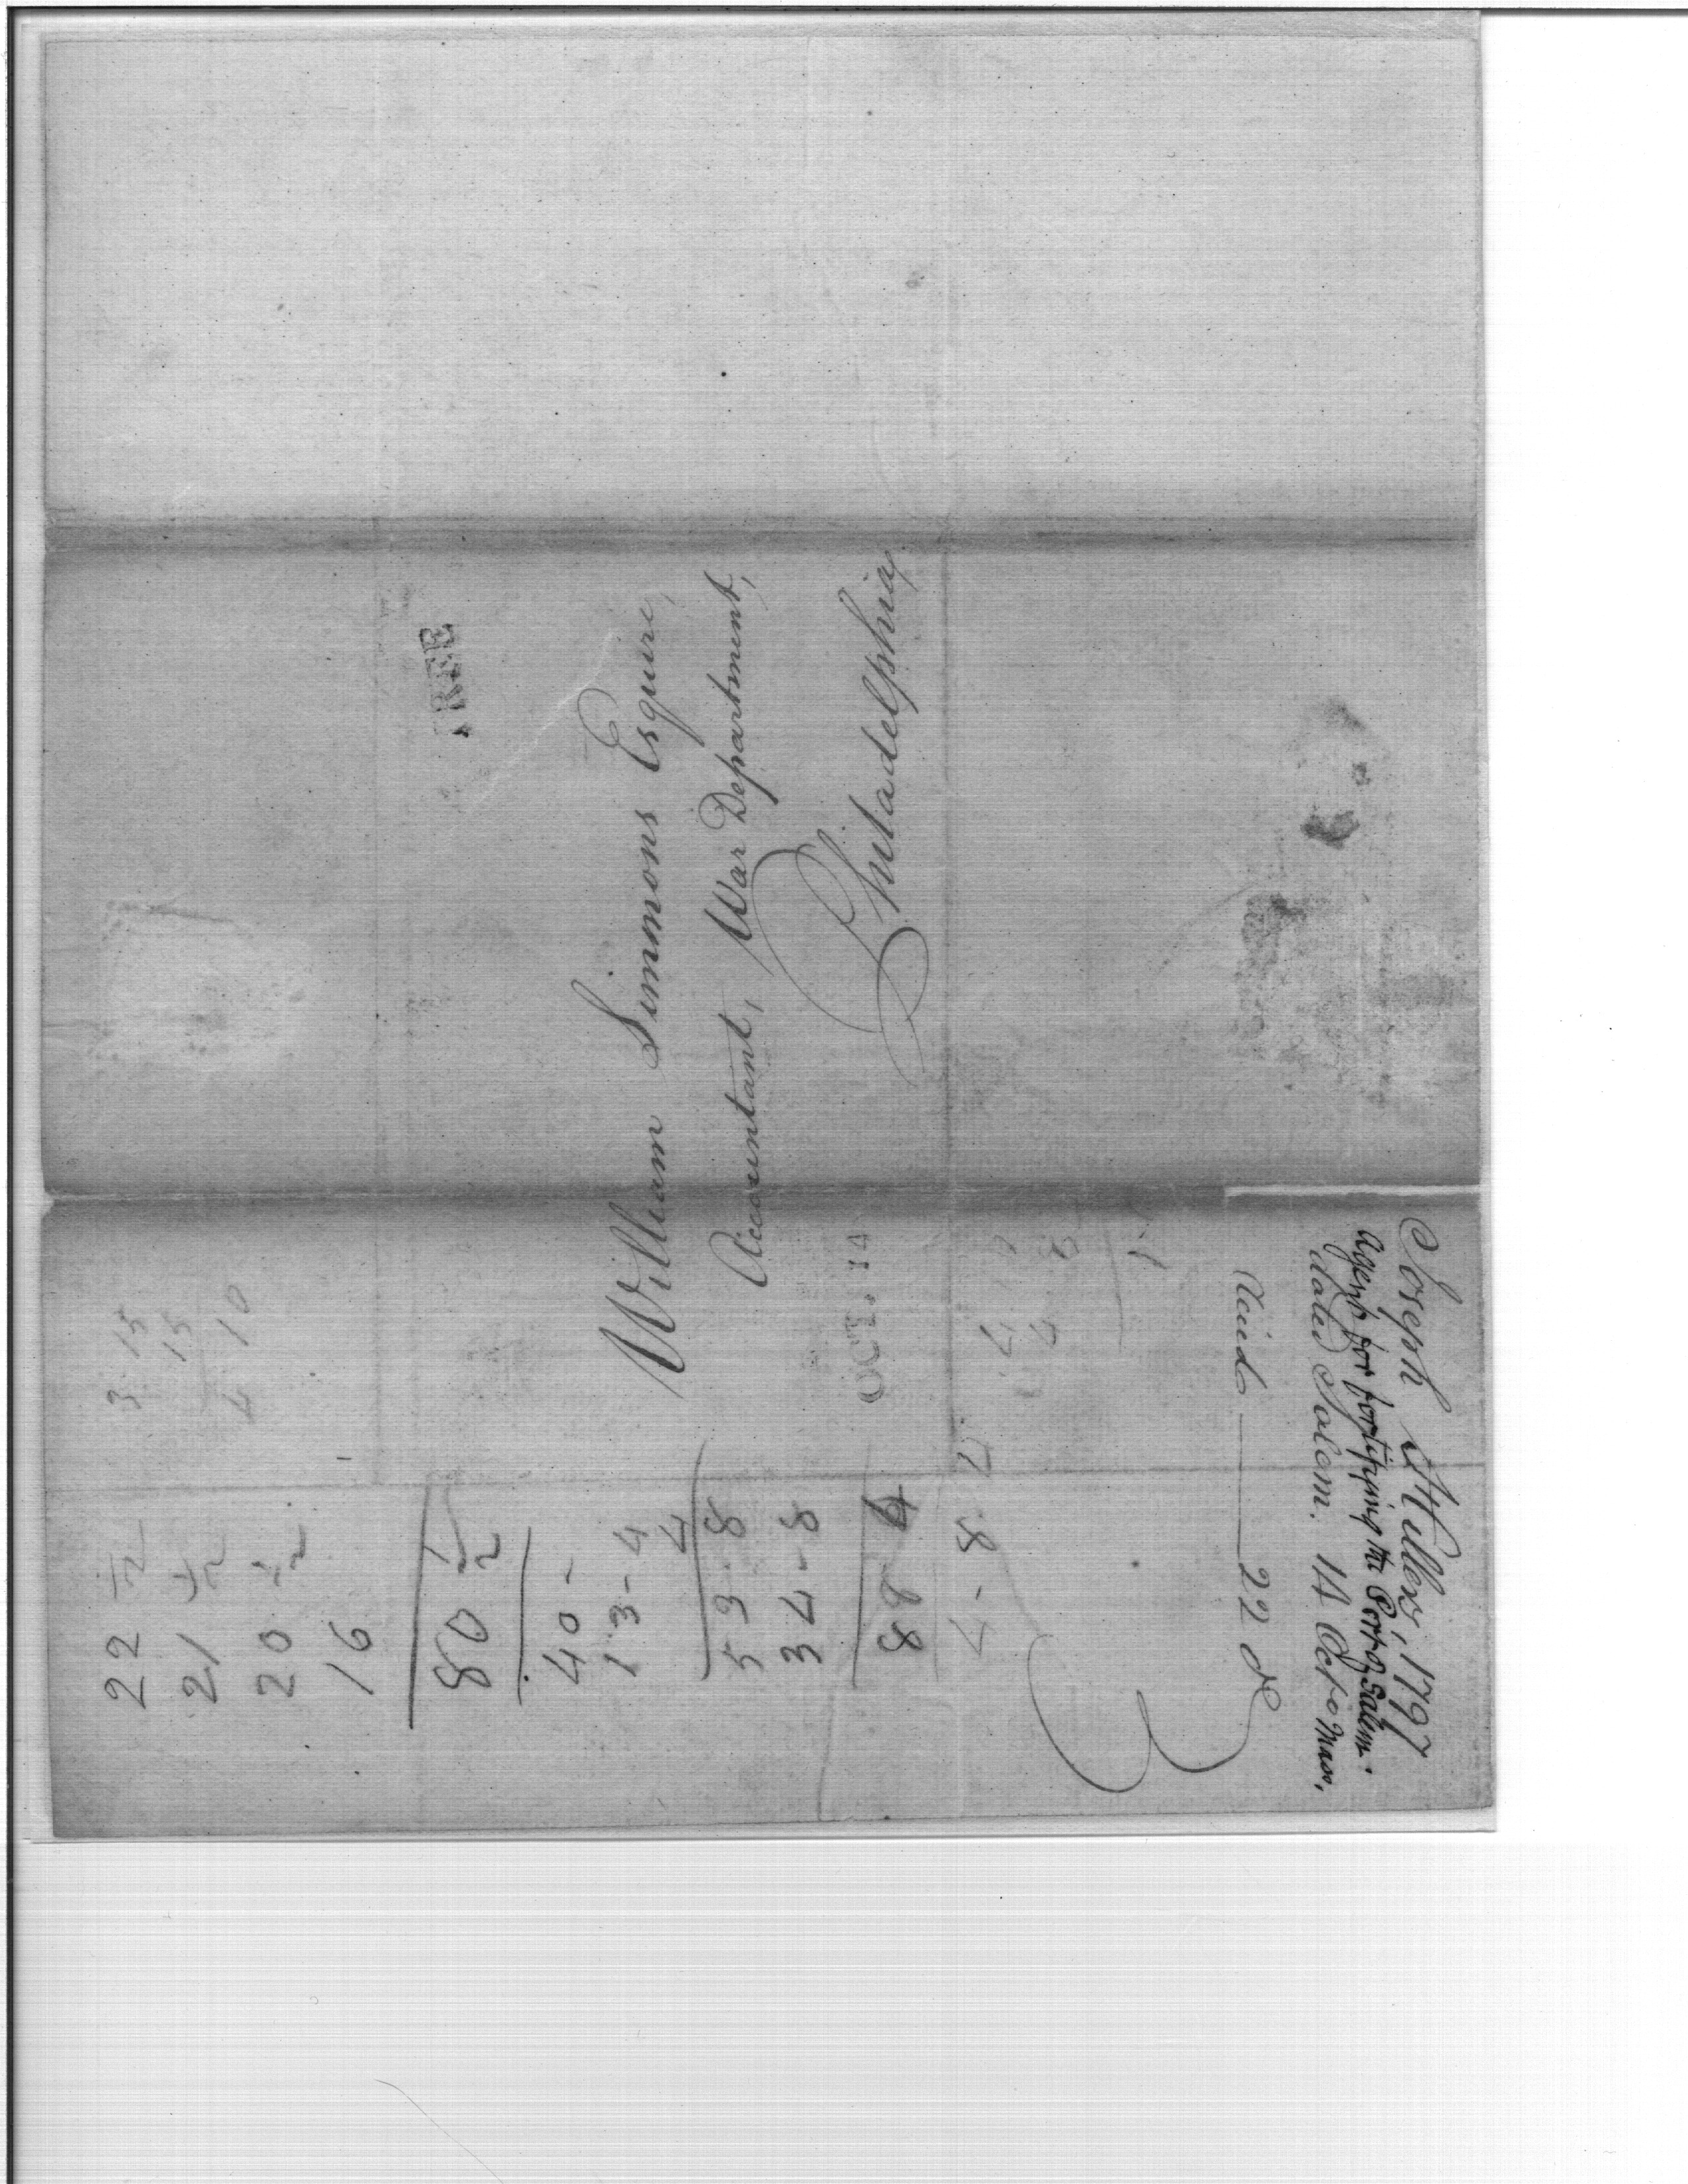 FREE
William Simmons Esquire,
Accountant, War Department,
Philadelphia
OCT. 14
Joseph Hiller, 1797
agent for fortifying the Port of Salem.
dated Salem. 14 Octo Mass.
22 do
3 15
15
4 10
22 1/2
21 1/2
20 1/2
16
80 1/2
40 -
13 - 4
53 8
34 - 8
88 4